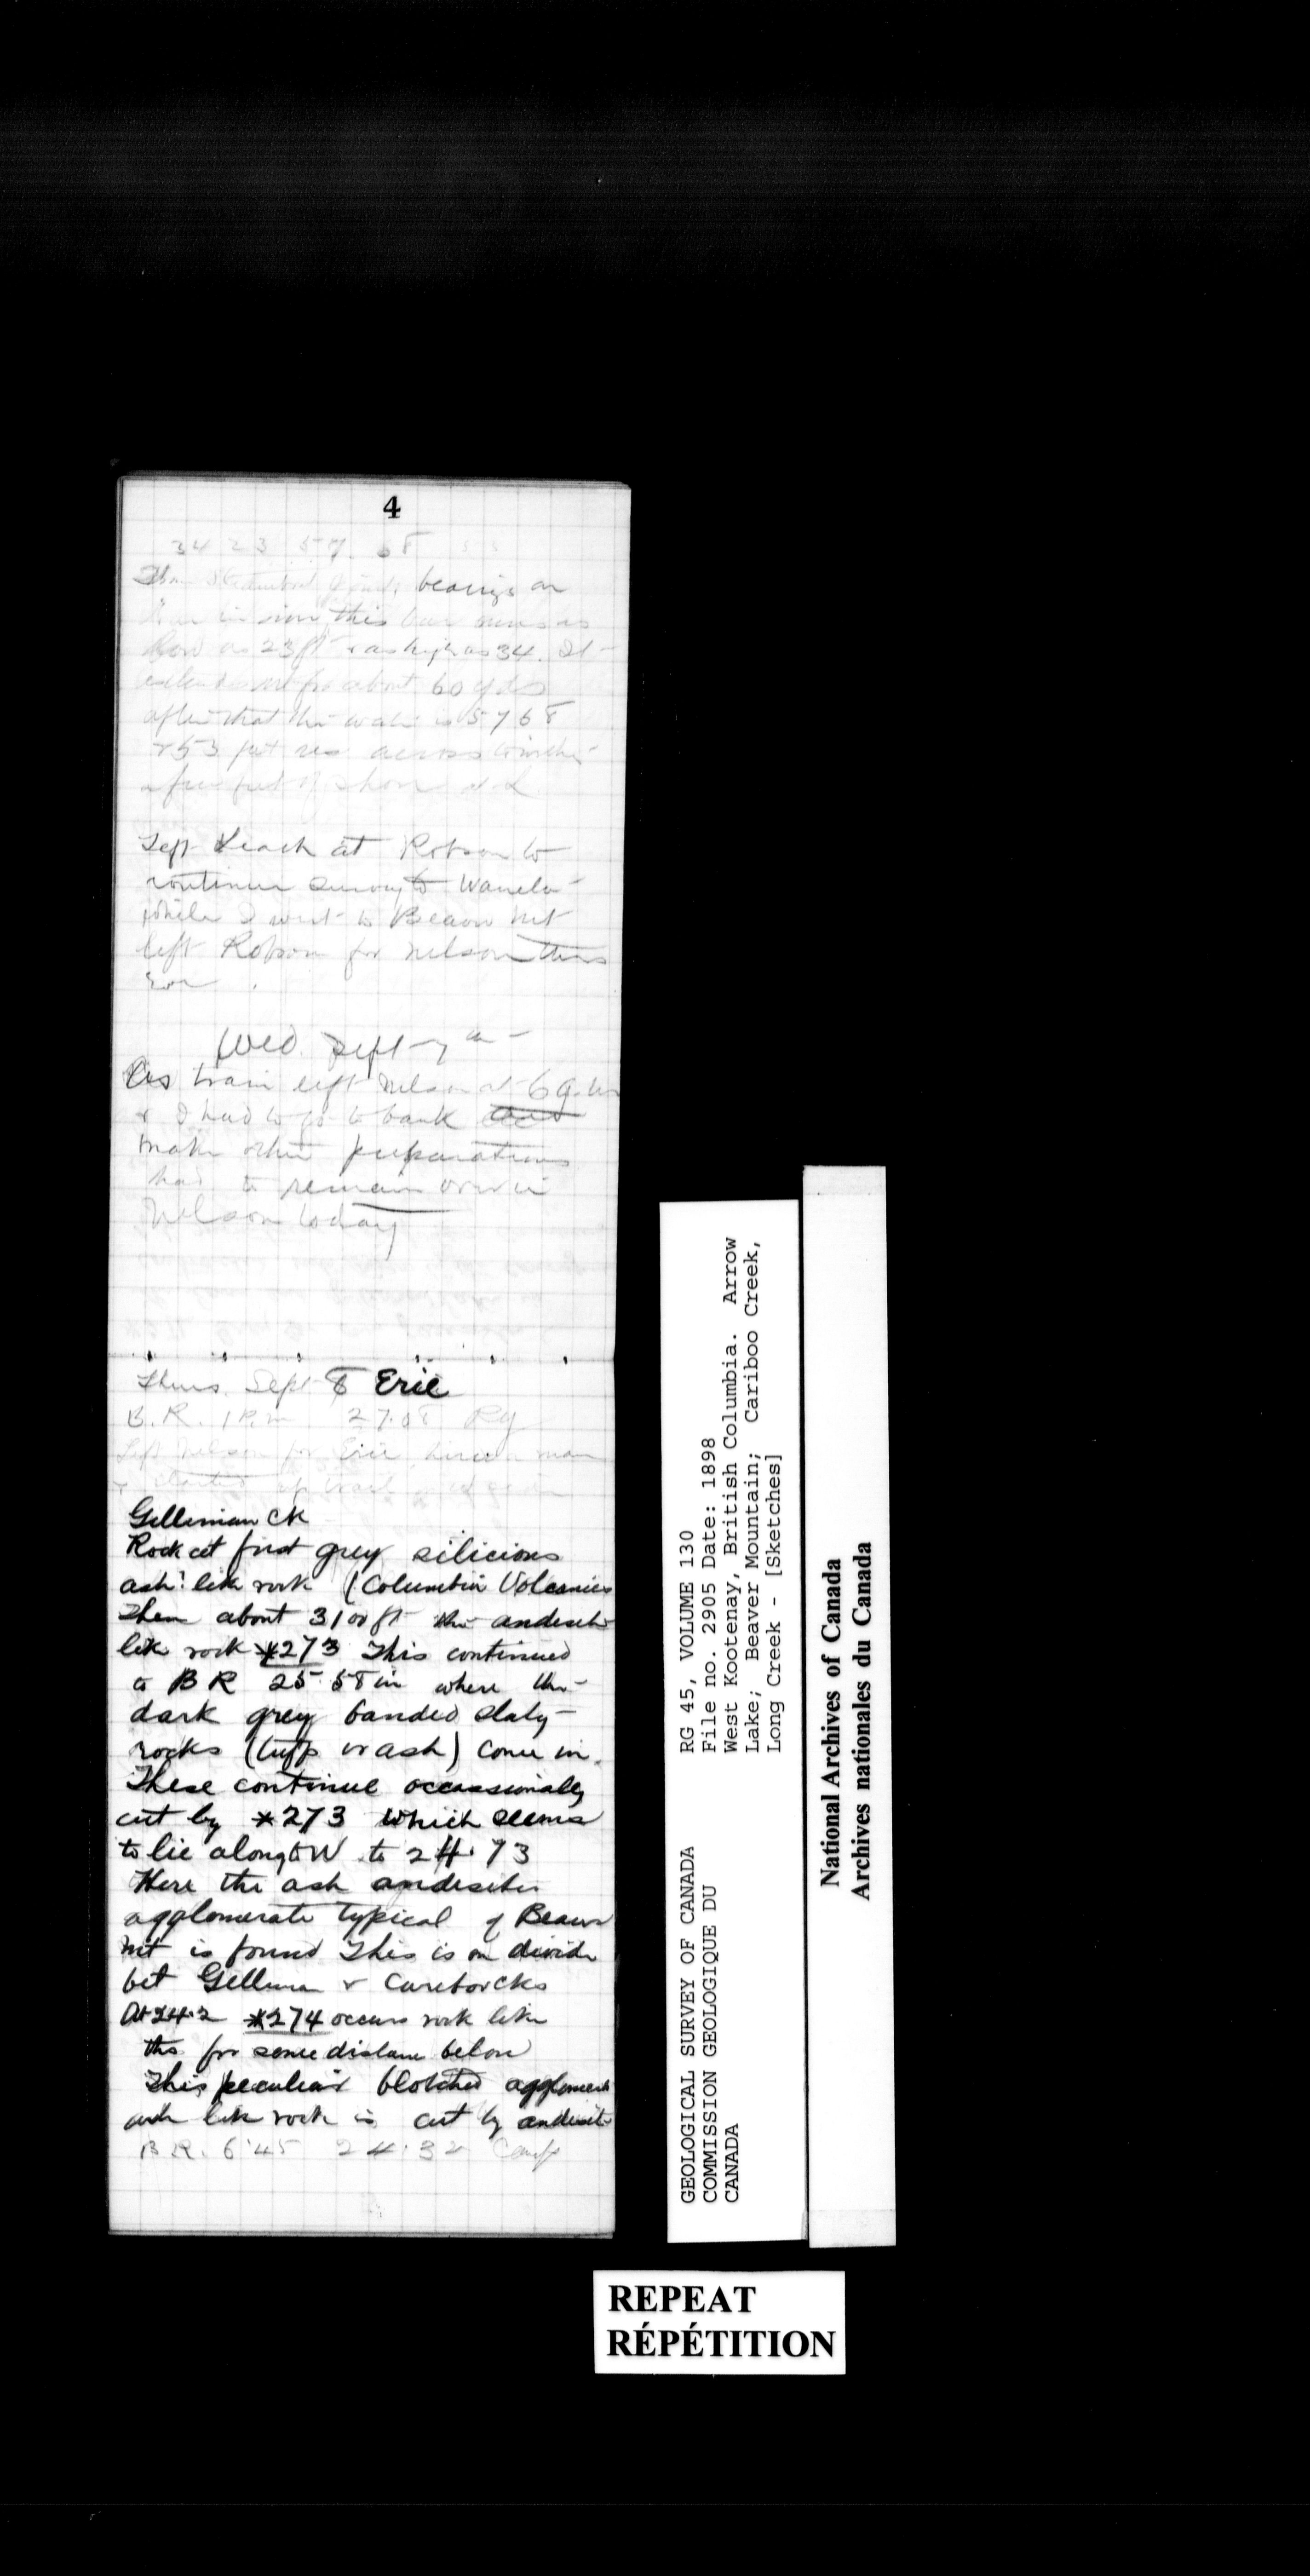 4
34 23 57. 68 53
bearings on
this bar runs as
low as 23 ft & as high as 34. It
extends out for about 60 yds
after that the water is 57 68
& 53 feet across
a few feet of shore
Left Leach at Robson to
continue survey to Waneta
while I went to Beaver Mt
left Robson for Nelson this
eve.
Wed. Sept 7
As train left Nelson at 6 9.
& I had to go to bank
make other preparations
had to remain over in
Nelson today
Thurs. Sept 8 Erie
B.R. 1 P.m 27.08
Left Nelson for Erie, man
& started up trail
Gelliman Ck
Rock at first grey silicious
ash like rock (Columbia Volcanics
Then about 3100 ft the andesite
like rock *273 This continued
to B R 25.58 in where the
dark grey banded slaty
rocks (tuff or ash) come in.
These continue occassionally
cut by *273 which seems
to lie along to W to 24.73
Here the ash andesite
agglomerate typical of Beaver
Mt is found This is on divide
bet Gelliman &
At 24.2 *274 occurs rock like
this for some distance below
This peculiar blotched agglomerate
ash like rock is cut by andesite
B.R. 6.45 24.32 Camp
GEOLOGICAL SURVEY OF CANADA
COMMISSION GEOLOGIQUE DU
CANADA
RG 45, VOLUME 130
File no. 2905 Date: 1898
West Kootenay, British Columbia. Arrow
Lake; Beaver Mountain; Cariboo Creek,
Long Creek - [Sketches]
National Archives of Canada
Archives nationales du Canada
REPEAT
RÉPÉTITION